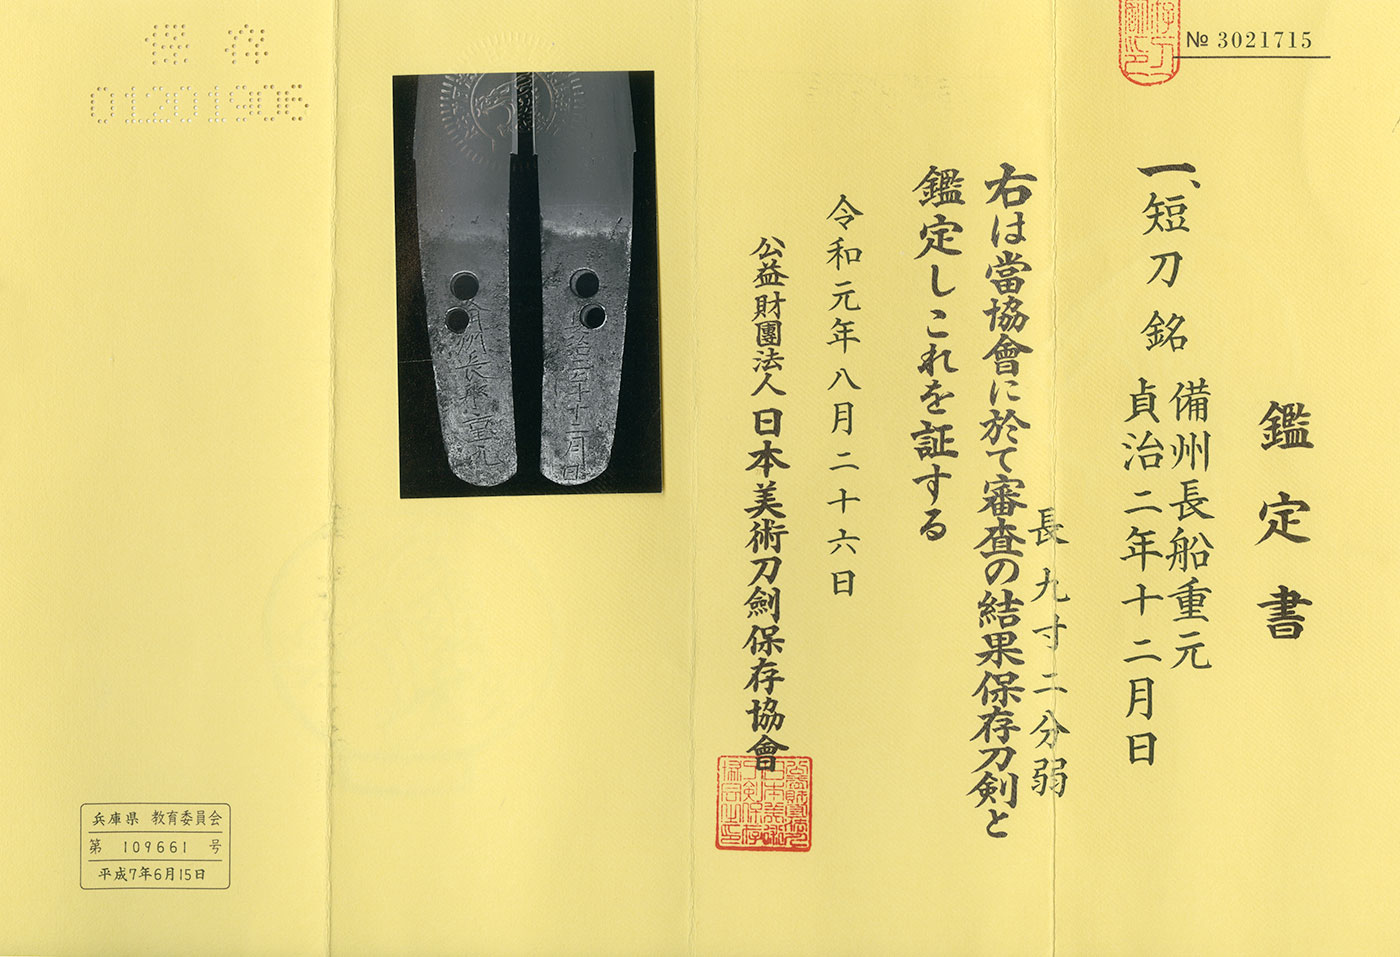 № 3021715
鑑定書
一、短刀 銘 備州長船重元
貞治二年十二月日
長九寸二分弱
右は當協會に於て審査の結果保存刀剣と
鑑定しこれを証する
令和元年八月二十六日
公益財團法人 日本美術刀劍保存協會
保存
01201906
州長船重元
治二年十二月日
兵庫県 教育委員会
第 109661 号
平成7年6月15日